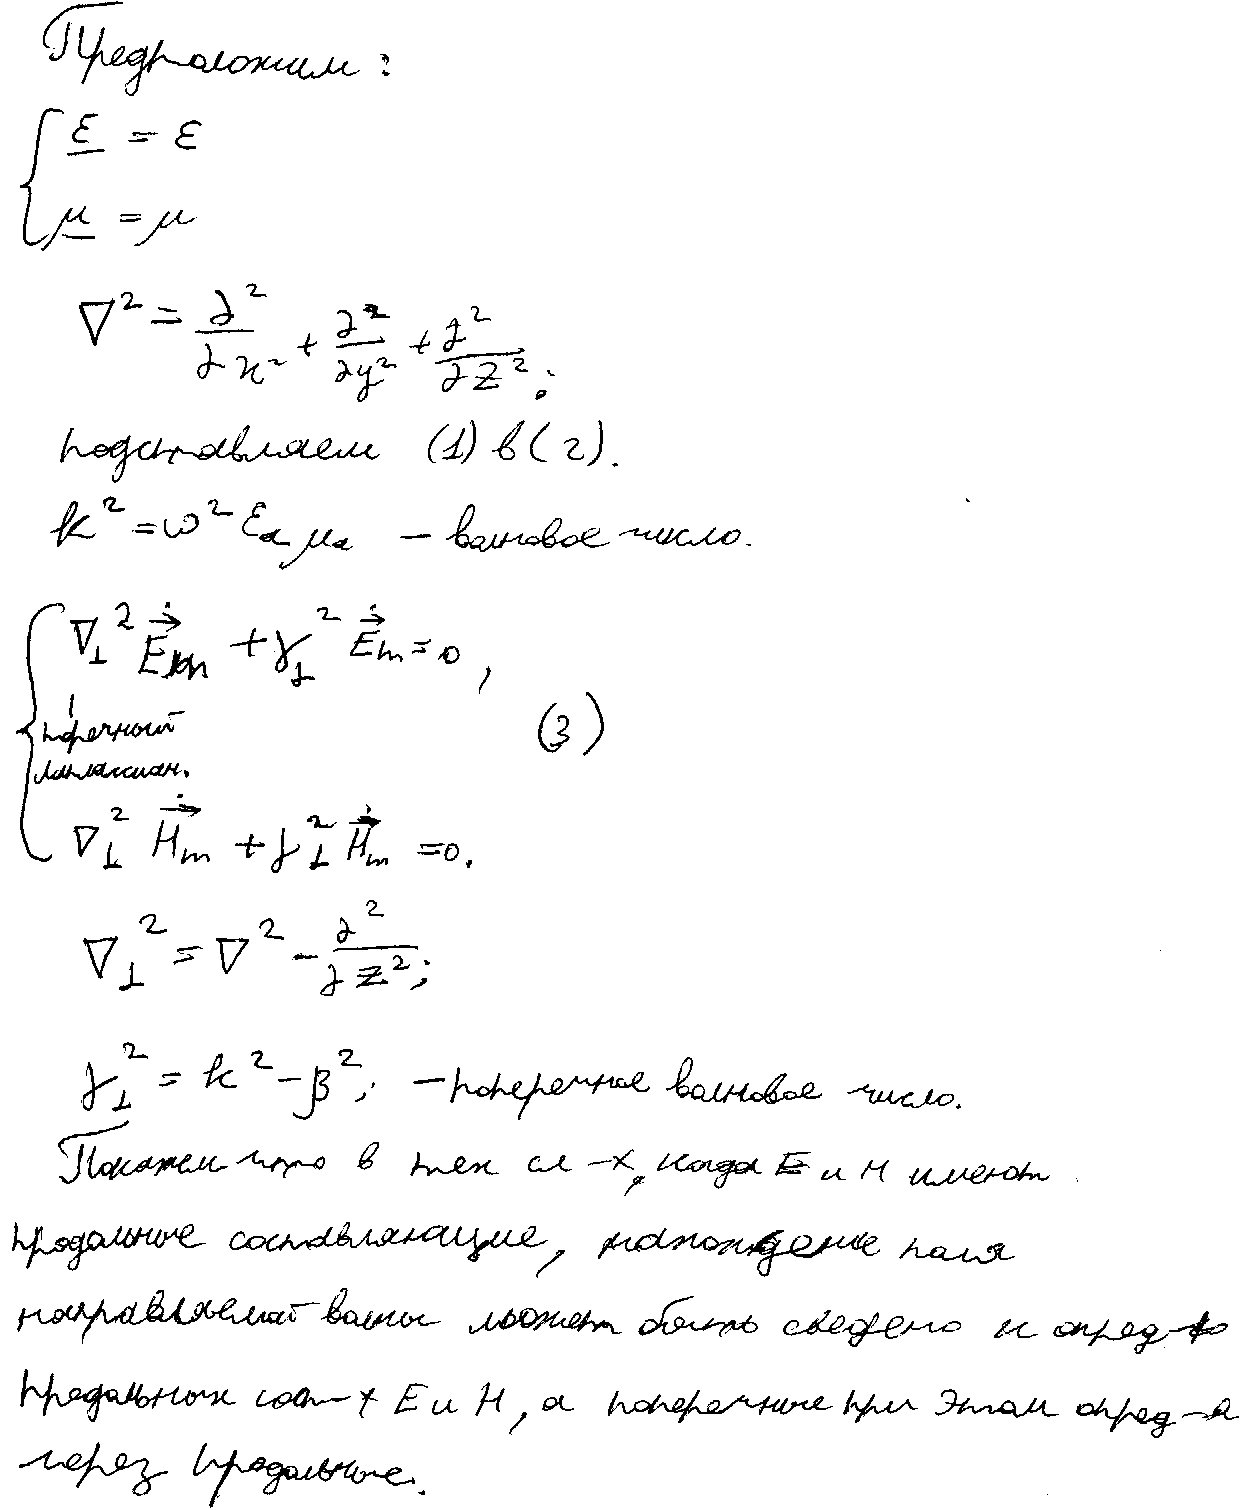 Предположим:
{ ε̲ = ε
μ̲ = μ
∇² = ∂²/∂x² + ∂²/∂y² + ∂²/∂z²;
подставляем (1) в (2).
k² = ω² εₐ μₐ – волновое число.
∇⊥² E⃗̇m + γ⊥² E⃗̇m = 0,
поречный
лапласиан.
(3)
∇⊥² H⃗̇m + γ⊥² H⃗̇m = 0.
∇⊥² = ∇² – ∂²/∂z²;
γ⊥² = k² – β²; – поперечное волновое число.
Покажем что в тех сл-х, когда E и H имеют
продольные составляющие, нахождение поля
направляемой волны может быть сведено к опред-ю
продольных сост-х E и H, а поперечные при этом опред-я
через продольные.